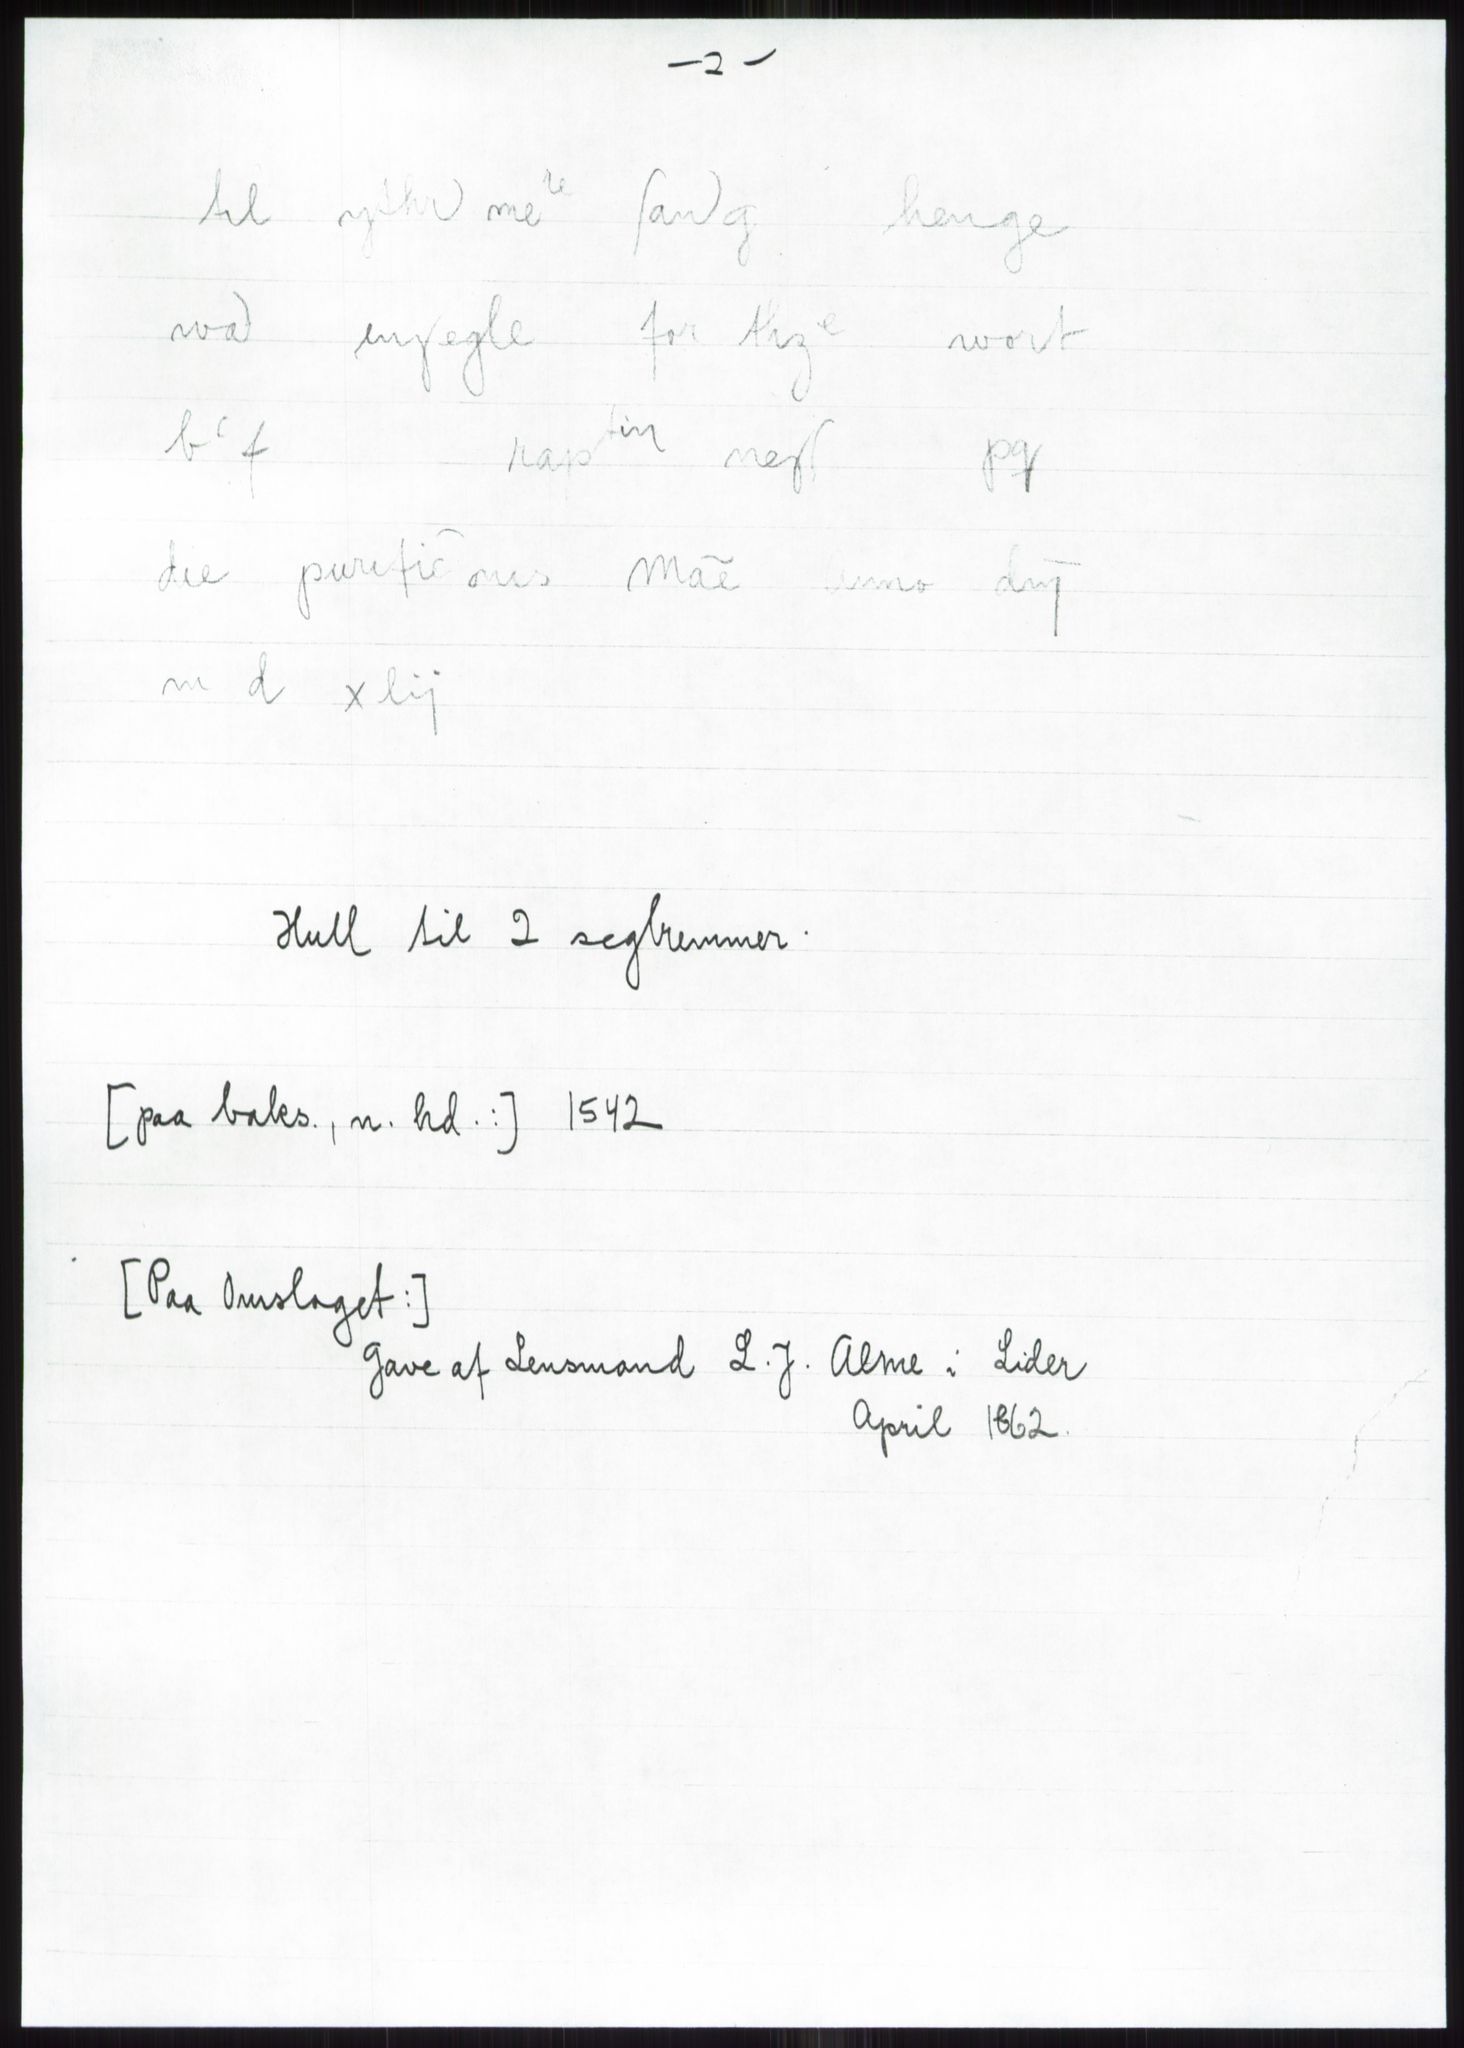 - 2 -
til ythr me re san g henge
wa inzegle for thz e wort
b c f scap tin nest pq
die purific̄ onis Māe Anno dnj̄
m d xlij
Hull til 2 seglremmer.
[paa baks., n. hd.:] 1542
[Paa Omslaget:]
Gave af Lensmand L. J. Alme i Lider
April 1862.